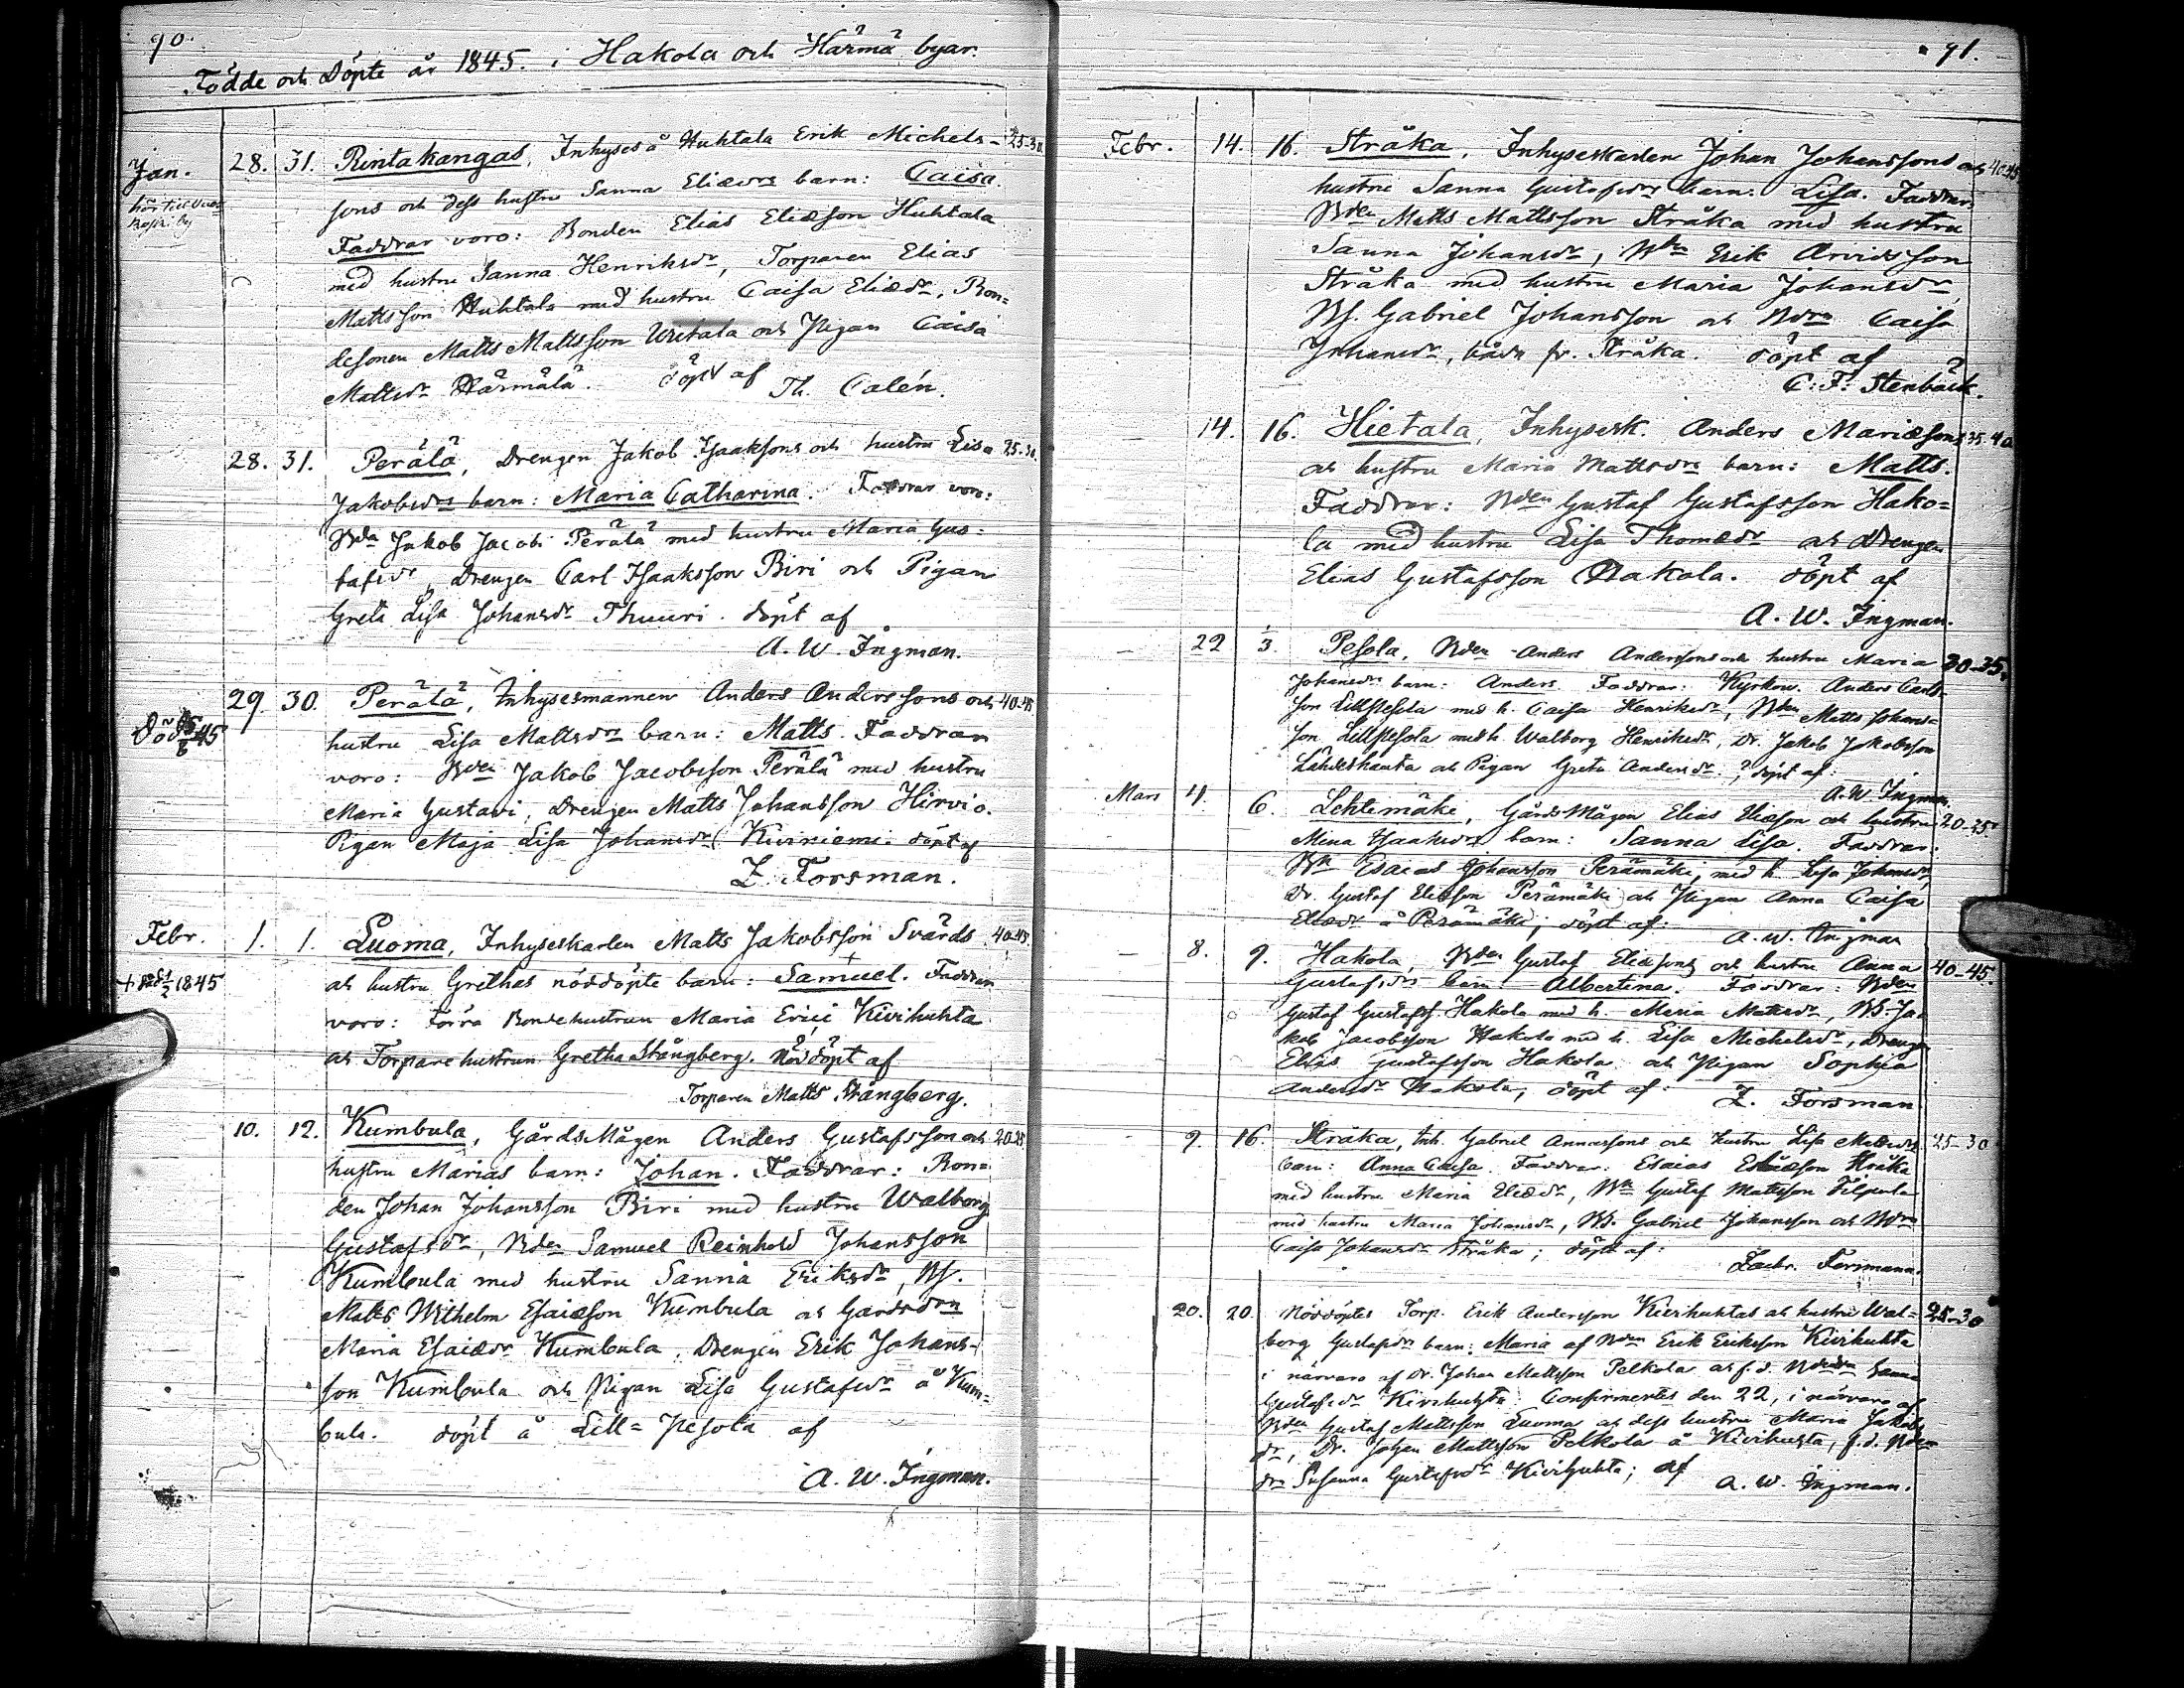 90.
Födde och Döpte år 1845. i Hakola och Härmä byar.
Jan. 28. 31. Rintakangas, Inhyses å Huhtala Erik Michels- 25-30.
sons och dess hustru Sanna Eliædrs barn: Caisa.
Faddrar voro: Bonden Elias Eliæson Huhtala
med hustru Sanna Henriksdr, Torparen Elias
Mattsson Huhtala med hustru Caisa Eliædr, Bon=
desonen Matts Mattsson och Pigan Caisa
Mattsdr Härmälä. döpt af
Th. Calén.
28. 31. Perälä, Drengen Jakob Isaaksons och hustru Lisa 25-30.
Jakobsdrs barn: Maria Catharina. Faddrar voro:
Bdn Jakob Jacobi Perälä med hustru Maria Gus=
tafsdr, Drengen Carl Isaaksson Biri och Pigan
Greta Lisa Johansdr Thuuri. döpt af
A. W. Ingman.
29 30. Perälä, Inhysesmannen Anders Anderssons och 40-45.
Död 45
hustru Lisa Mattsdrs barn: Matts. Faddrar
voro: Bden Jakob Jacobsson Perälä med hustru
Maria Gustavi, Drengen Matts Johansson Hirvi o.
Pigan Maja Lisa Johansdr Kiviniemi. döpt af
Z. Forsman.
Febr. 1. 1. Luoma, Inhyseskarlen Matts Jakobsson Svärds 40-45.
1845
och hustru Grethas nöddöpte barn: Samuel. Faddrar
voro: Förra Bondehustrun Maria Erici Kivihuhta
och Torparehustrun Gretha Stångberg. Nöddöpt af
Torparen Matts Stångberg.
10. 12. Kumbula, GårdsMågen Anders Gustafsson och 20-25.
hustru Marias barn: Johan. Faddrar: Bon=
den Johan Johansson Biri med hustru Walborg
Gustafsdr, Bden Samuel Reinhold Johansson
Kumbula med hustru Sanna Eriksdr, Bs.
Matts Wilhelm Esaiæson Kumbula och Gårdsdrn
Maria Esaiædr Kumbula, Drengen Erik Johans-
son Kumbula och Pigan Lisa Gustafsdr å Kum=
bula. döpt å Lill=Pesola af
A. W. Ingman.
91.
Febr. 14. 16. Stråka, Inhyseskarlen Johan Johanssons och 40-45
hustru Sanna Gustafsdrs barn: Lisa. Faddrar
Bden Matts Mattsson Stråka med hustru
Sanna Johansdr, Bdn Erik Arvidsson
Stråka med hustru Maria Johansdr,
Bs. Gabriel Johansson och Bdrn Caisa
Johansdr, båda fr. Stråka. döpt af
C. F. Stenbäck.
14. 16. Hietala, Inhysesk. Anders Mariæsons 35-40
och hustru Maria Mattsdrs barn: Matts.
Faddrar: Bden Gustaf Gustafsson Hako=
la med hustru Lisa Thomædr och Drengen
Elias Gustafsson Hakola. döpt af
A. W. Ingman.
22 1/3. Pesola, Bden Anders Anderssons och hustru Maria 30-35.
Johansdrs barn: Anders. Faddrar: Kyrkow. Anders Carls-
son LillPesola med h. Caisa Henriksdr, Bden Matts Johans=
son LillPesola med h. Walborg Henriksdr, Dr. Jakob Jakobsson
Lähdeshauta och Pigan Greta Andersdr; döpt af:
A. W. Ingman.
Mars 4. 6. Lehtimäki, GårdsMågen Elias Eliæson och hustru 20-25.
Mina Isaaksdrs barn: Sanna Lisa. Faddrar:
Bdn Esaias Johansson Perämäki, med h. Lisa Johansdr,
Dr. Gustaf Eliæson Perämäki och Pigan Anna Caisa
Eliædr å Perämäki; döpt af:
A. W. Ingman
8. 9. Hakola, Bden Gustaf Eliæsons och hustru Anna 40-45.
Gustafsdrs barn Albertina. Faddrar: Bden
Gustaf Gustafss. Hakola med h. Maria Mattsdr, Bs. Ja=
kob Jacobsson Hakola med h. Lisa Michelsdr, Drengen
Elias Gustafsson Hakola och Pigan Sophia
Andersdr Hakola; döpt af:
Z. Forsman
9. 16. Stråka, Inh. Gabriel Annassons och hustru Lisa 25-30
barn: Anna Caisa. Faddrar: Esaias Esaiæson Stråka
med hustru Maria Eliædr, Bdn Gustaf Mattsson Filpula
med hustru Maria Johansdr, Bs. Gabriel Johansson och Bdrn
Caisa Johansdr Stråka; döpt af:
Zachr. Forsman.
20. 20. Nöddöptes Torp. Erik Andersson Kivihuhtas och hustru Wal= 25-30
borg Gustafsdrs barn: Maria af Bden Erik Eriksson Kivihuhta
i närvaro af Dr. Johan Mattsson Pelkola och f.d. Sanna
Gustafsdr Kivihuhta. Confirmertes den 22, i närvaro af
Bden Gustaf Mattsson Luoma och dess hustru Maria Jakobs
dr, Dr. Johan Mattsson Pelkola å Kivihuhta, f.d.
Susanna Gustafsdr Kivihuhta; af
A. W. Ingman.